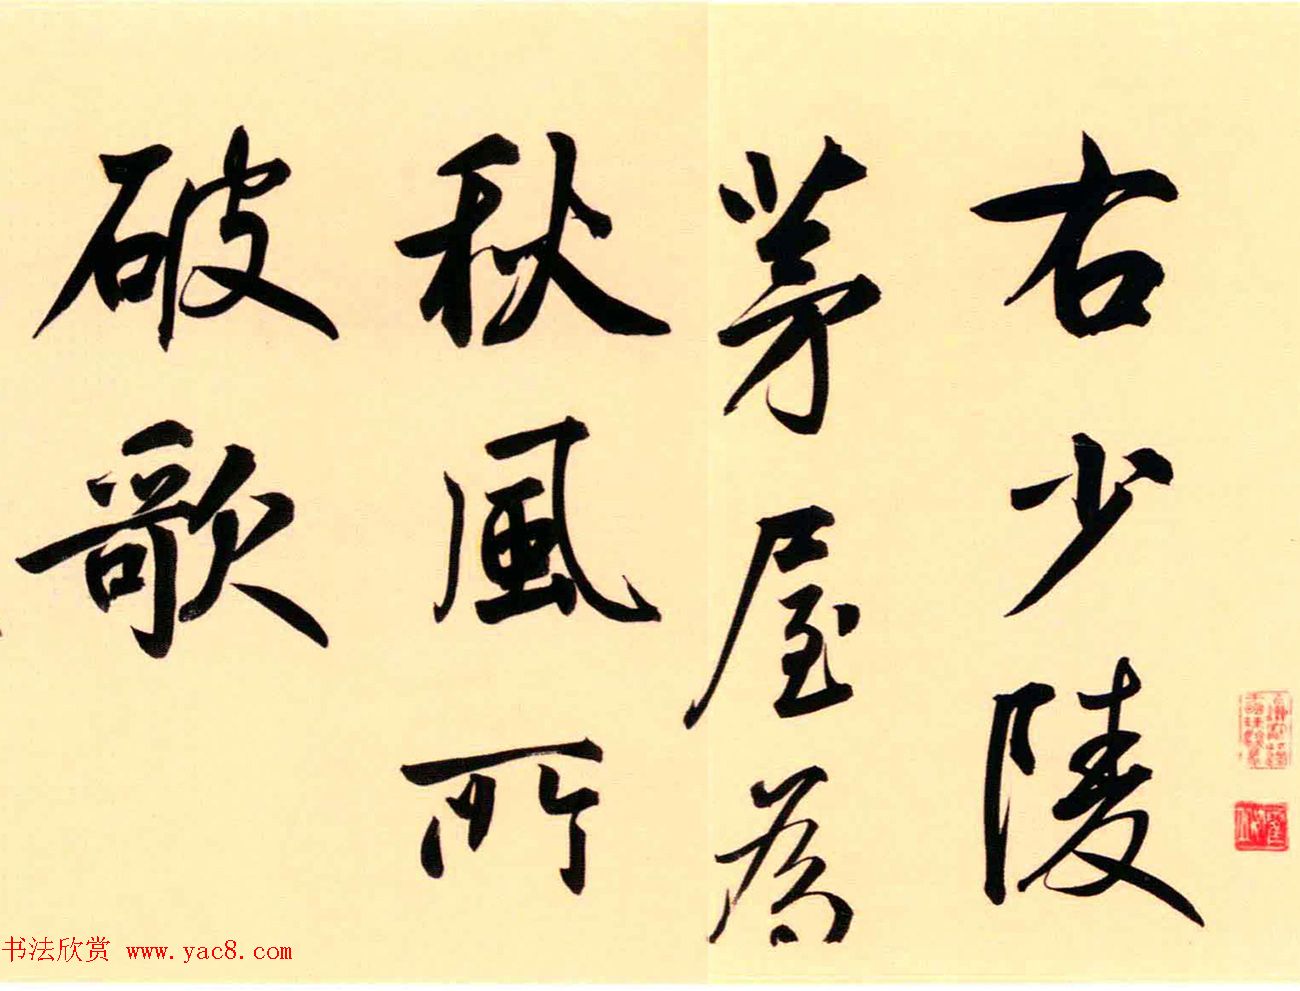 右少陵
茅屋為
秋風所
破歌
书法欣赏 www.yac8.com